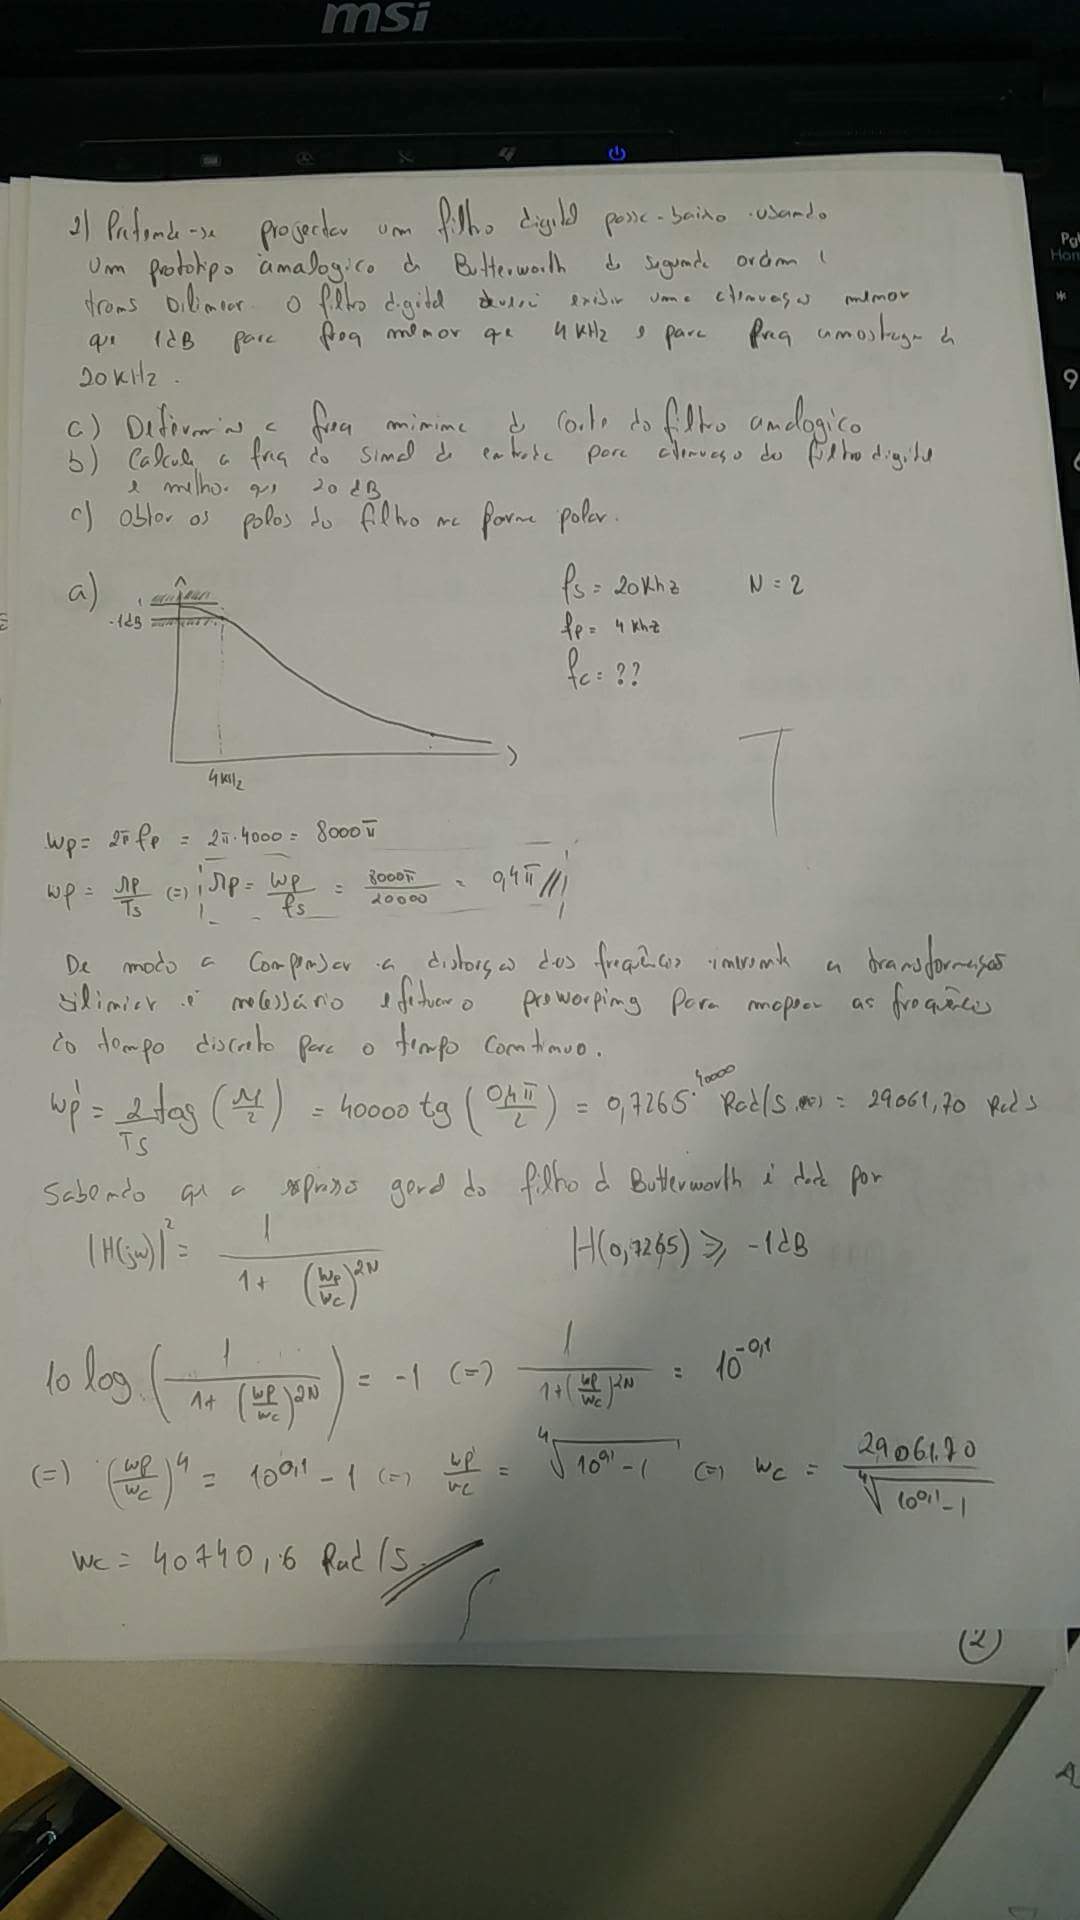 msi
2) Pretende-se projectar um filtro digital passa-baixo usando
um prototipo analogico de Butterworth de segunda ordem e
trans bilinear. O filtro digital deverá exibir uma atenuação menor
que 1dB para freq menor que 4 KHz e para freq amostragem de
20 KHz.
a) Determine a freq minima de corte do filtro analogico
b) Calcule a freq do sinal de entrada para atenuação do filtro digital
e melhor que 20 dB
c) Obter os polos do filtro na forma polar.
a)
fs = 20 Khz N = 2
-1dB
fp = 4 Khz
fc = ??
4KHz
wp = 2π fp = 2π.4000 = 8000π
wp = Ωp/Ts (=) Ωp = wp/fs = 8000π/20000 = 0,4π //
De modo a compensar a distorção das frequências inerente a transformação
bilinear é necessário efetuar o prewarping para mapear as frequências
do tempo discreto para o tempo continuo.
wp' = 2/Ts tag (Ω/2) = 40000 tg (0,4π/2) = 0,7265.40000 Rad/s = 29061,70 Rad s
Sabendo que a expressão geral do filtro de Butterworth é dada por
|H(jw)|² = 1/(1+ (wp/wc)^2N) H(0,7265) ⩾ -1dB
10 log (1/(1+ (wp/wc)^2N)) = -1 (=) 1/(1+(wp/wc)^2N) = 10^-0,1
(=) (wp/wc)^4 = 10^0,1 - 1 (=) wp'/wc = ⁴√(10^0,1 - 1) (=) wc = 29061,70/⁴√(10^0,1 - 1)
wc = 40740,6 Rad/s
(2)